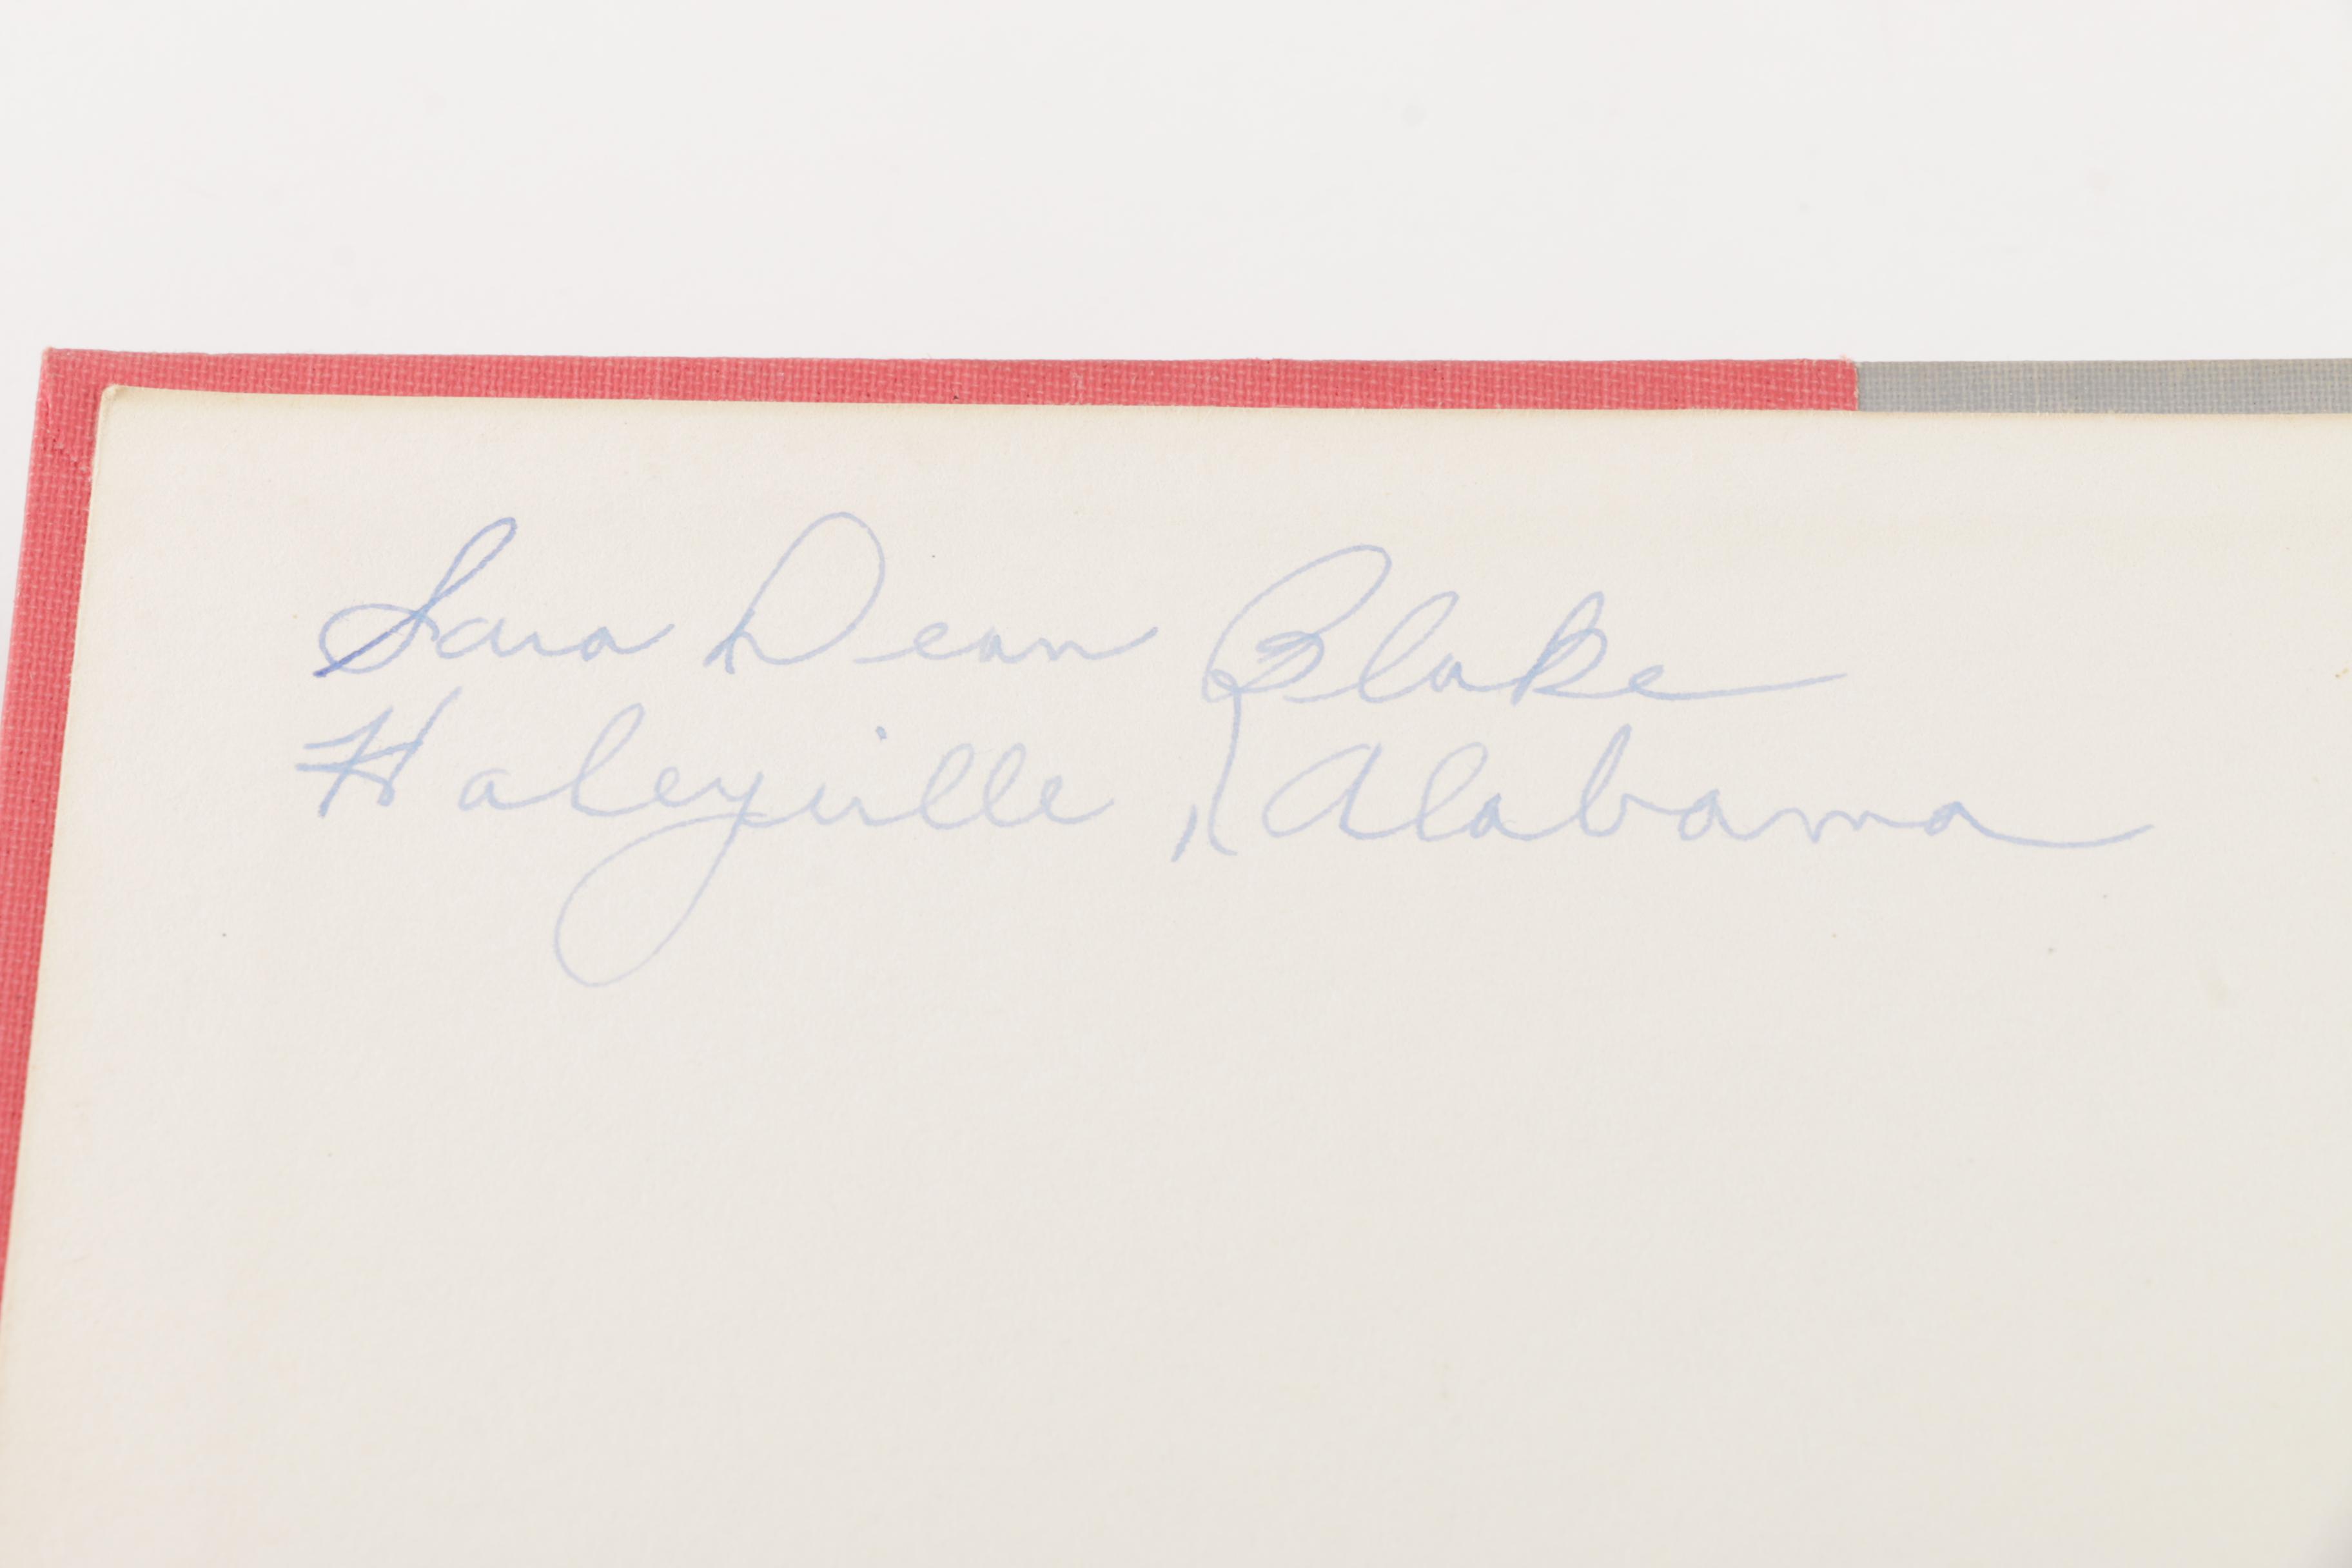 Sara Dean Blake
Haleyville, Alabama